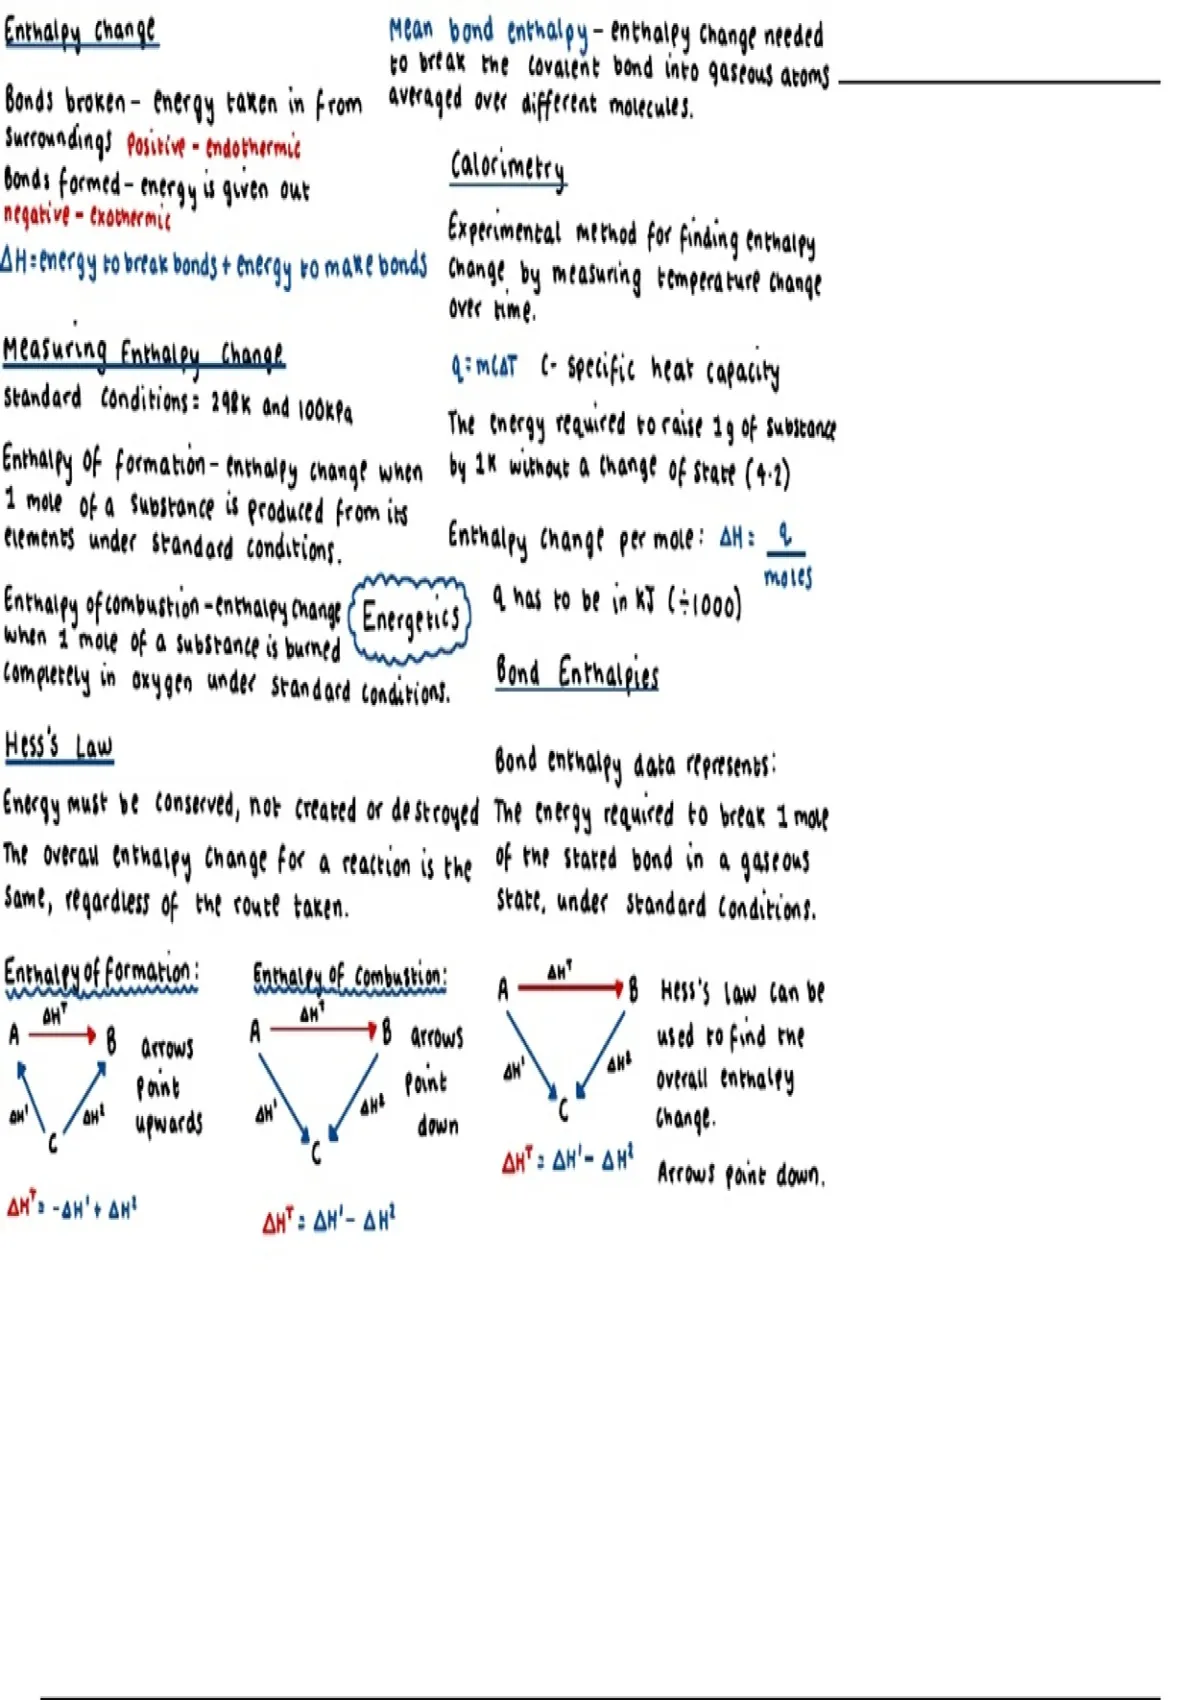 Enthalpy Change
Bonds broken - energy taken in from
surroundings positive - endothermic
Bonds formed - energy is given out
negative - exothermic
ΔH = energy to break bonds + energy to make bonds
Mean bond enthalpy - enthalpy change needed
to break the covalent bond into gaseous atoms
averaged over different molecules.
Measuring Enthalpy Change
Standard conditions = 298K and 100kPa
Enthalpy of formation - enthalpy change when
1 mole of a substance is produced from its
elements under standard conditions.
Enthalpy of combustion - enthalpy change
when 1 mole of a substance is burned
completely in oxygen under standard conditions.
Energetics
Calorimetry
Experimental method for finding enthalpy
change by measuring temperature change
over time.
q = mcΔT C - specific heat capacity
The energy required to raise 1g of substance
by 1K without a change of state (4.2)
Enthalpy change per mole: ΔH = q
moles
q has to be in kJ (÷1000)
Hess's Law
Energy must be conserved, not created or destroyed
The overall enthalpy change for a reaction is the
same, regardless of the route taken.
Bond Enthalpies
Bond enthalpy data represents:
The energy required to break 1 mole
of the stated bond in a gaseous
state, under standard conditions.
Enthalpy of formation:
ΔHᵀ
A B
arrows
point
upwards
ΔH¹ ΔH²
C
ΔHᵀ = -ΔH¹ + ΔH²
Enthalpy of combustion:
ΔHᵀ
A B arrows
point
down
ΔH¹ ΔH²
C
ΔHᵀ = ΔH¹ - ΔH²
ΔHᵀ
A B
ΔH¹ ΔH²
C
ΔHᵀ = ΔH¹ - ΔH²
Hess's law can be
used to find the
overall enthalpy
change.
Arrows point down.